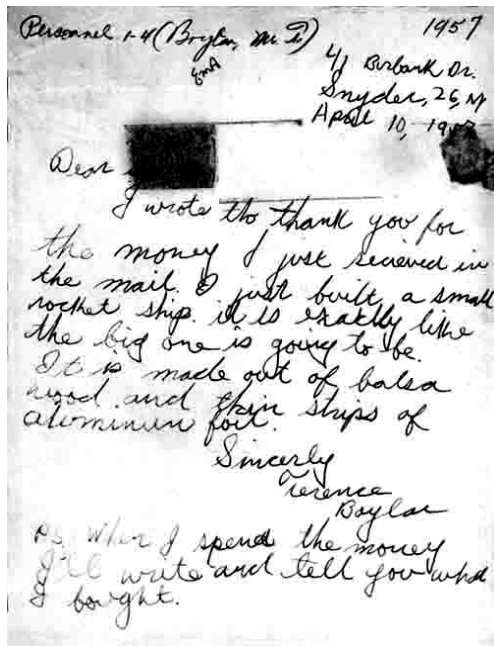 Personnel 1-4 (Boylan, M. T.)
1957
EMA
41 Burbank Dr.
Snyder, 26, NY
April 10, 1957
Dear
I wrote tho thank you for
the money I just recieved in
the mail. I just built a small
rocket ship. it is exactly like
the big one is going to be.
It is made out of balsa
wood and thin strips of
aluminum foil.
Sincerly
Terence
Boylan
PS. When I spend the money
I'll write and tell you what
I bought.